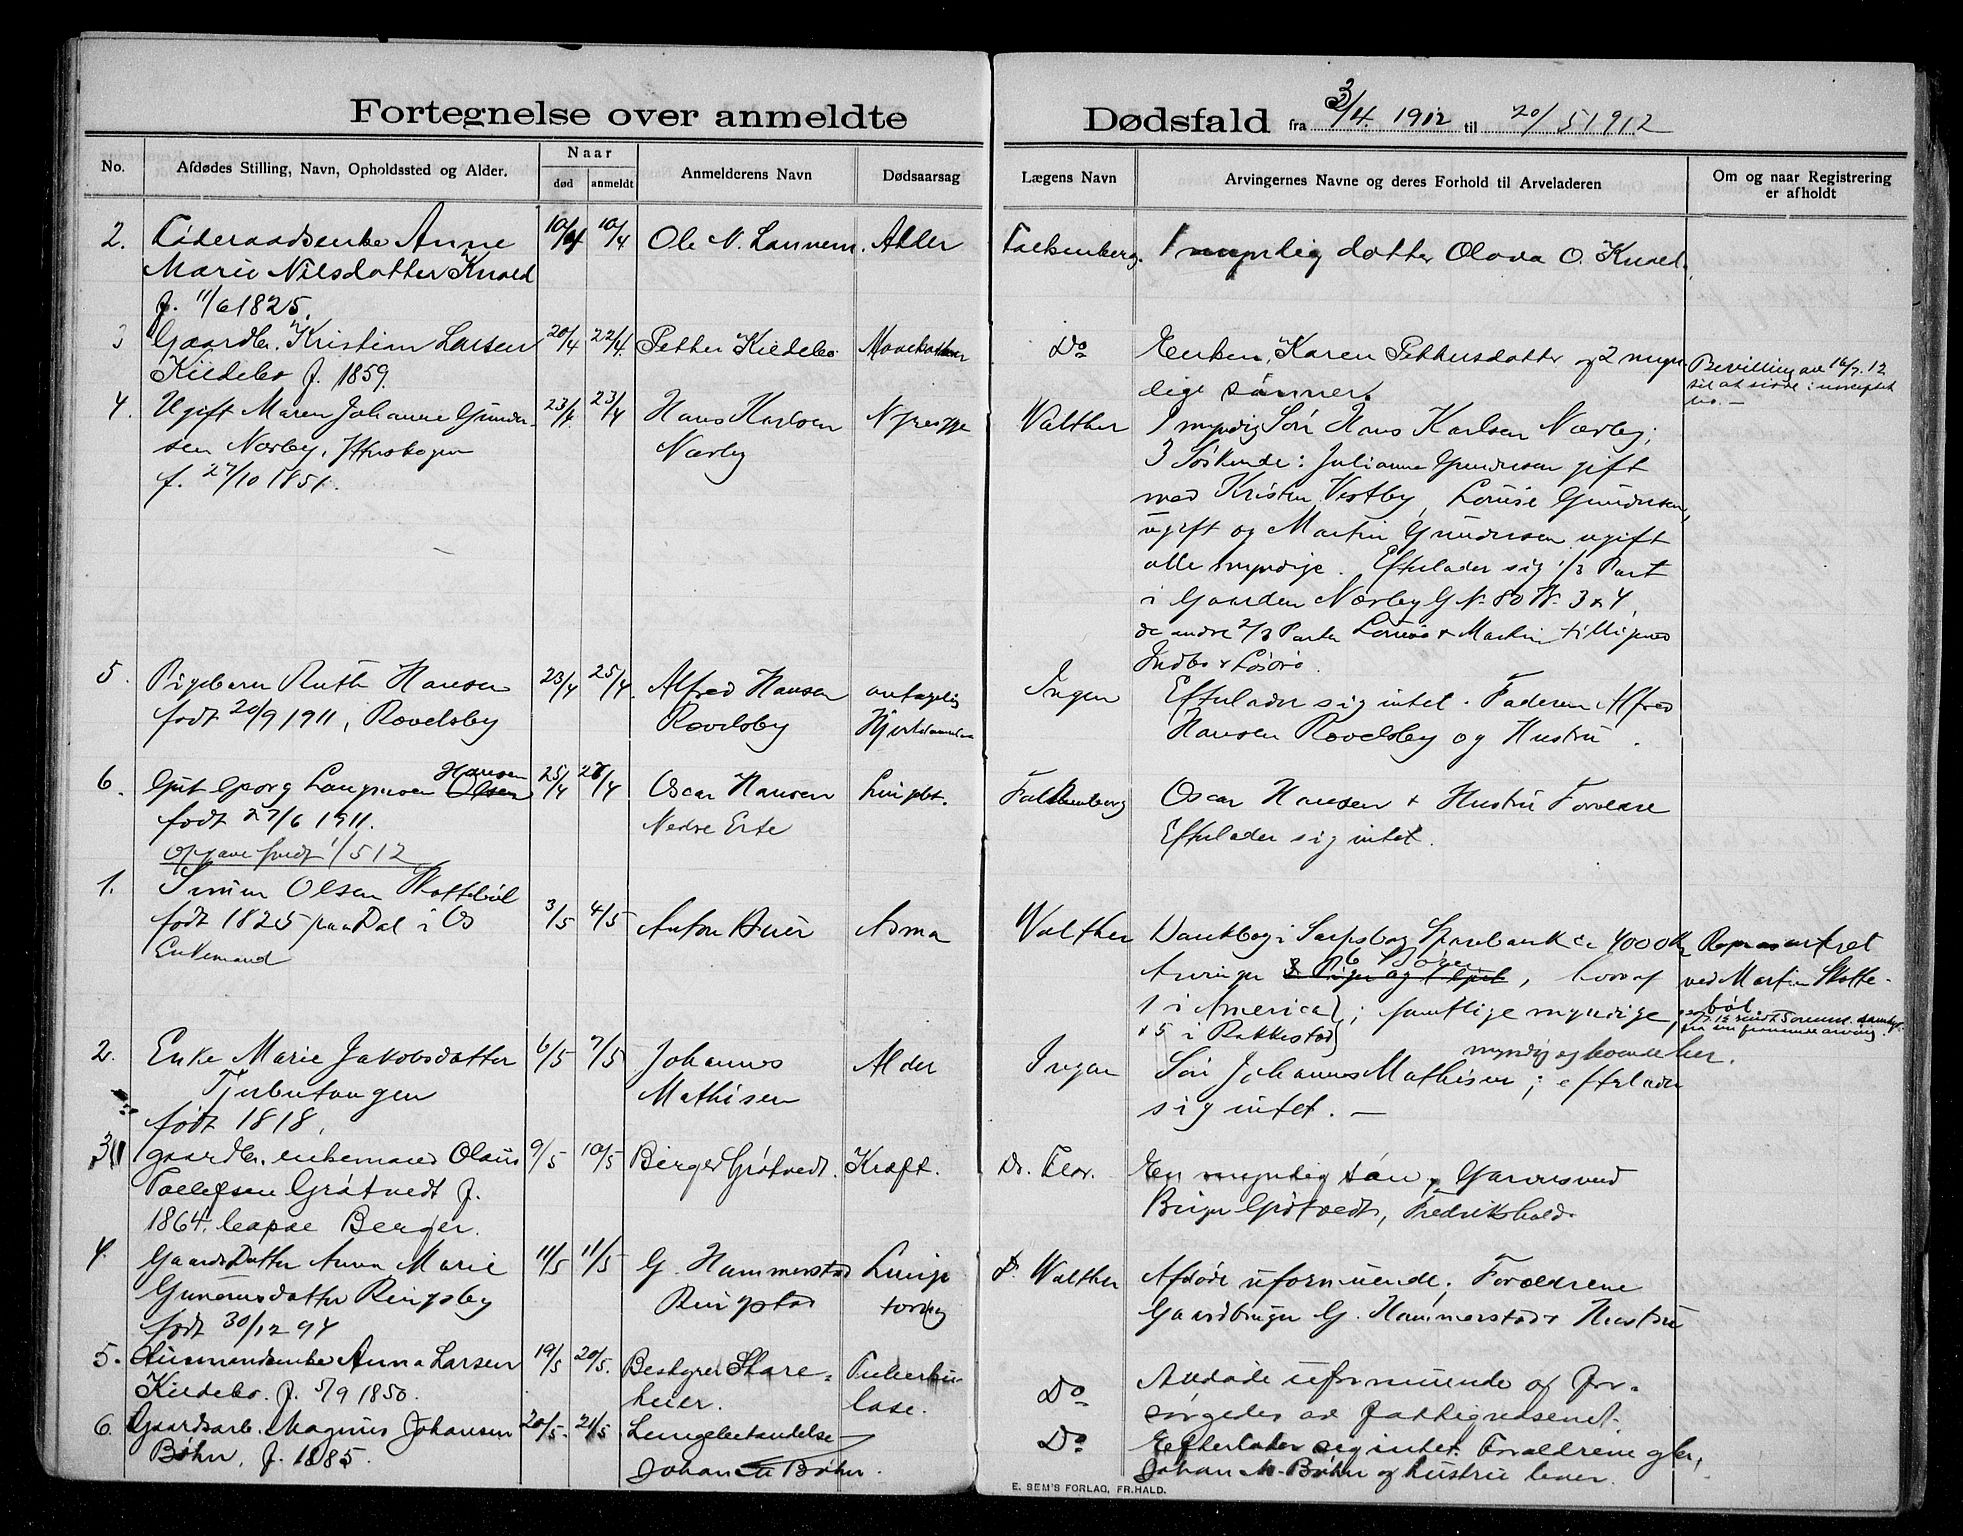 Fortegnelse over anmeldte Dødsfald fra 3/4. 1912 til 20/5 1912
No. Afdødes Stilling, Navn, Opholdssted og Alder. Naar død anmeldt Anmelderens Navn Dødsaarsag Lægens Navn Arvingernes Navne og deres Forhold til Arveladeren Om og naar Registrering er afholdt
2. Föderaadsenke Anne 10/4 10/4 Ole N. Lannem. Alder Falkenberg. 1 myndig dotter Olava O. Knold.
Marie Nilsdatter Knold
f. 11/6 1825.
3 Gaardbr. Kristian Larsen 20/4 22/4. Petter Kildebo Do Enken, Karen Pettersdatter og 2 myn-
Kildebo f. 1859. dige sönner.
Bevilling av 16/7. 12
til at sidde i uskiftet
bo. —
4. Ugift Maren Johanne Gunder- 23/4 23/4 Hans Karlsen Walther 1 myndig Sön Hans Karlsen Nærby;
sen Nærby, f. 27/10 1851. Nærby
3 Söskende: Julianne Gundersen gift
med Kristen Vestby, Lovise Gundersen,
ugift og Martin Gundersen ugift
alle myndige. Efterlader sig 1/3 Part
i Gaarden Nærby G No 80 3 & 4,
de andre 2/3 Parter Lovise & Martin tilligemed
Indbo & Lösöre.
5. Pigebarn Ruth Hansen 23/4 25/4. Alfred Hansen antagelig Ingen Efterlader sig intet. Faderen Alfred
født 20/9 1911, Rovelsby Rovelsby Hansen Rovelsby og Hustru.
6. Gut Georg Hansen Olsen 25/4 27/4 Oscar Hansen Lungebet. Falkenberg Oscar Hansen & Hustru Forældre
født 27/6 1911. Nedre Erte Efterlader sig intet.
Opgave sendt 1/5 12
1. Simon Olsen Skottebøl
født 1825 paa Dal i Os 3/5 4/5 Anton Buer Asma Walther Bankbog i Sarpsborg Sparebank ca 4000 Kr
Enkemand
Arvinger 6 Börn, hvoraf
1 i America; samtlige myndige,
& 5 i Rakkestad
Repræsenteret
ved Martin Skotte-
bøl
2. Enke Marie Jakobsdatter 6/5 7/5 Johannes Alder Ingen Sön Johannes Mathisen; efterlader
Tjerbutangen Mathisen sig intet. —
født 1818. myndig og boende her.
3 gaardbr. enkemand Olaus 9/5 10/5 Birger Grötvedt. Kræft. Dr. Flor. En myndig søn, Gaardsarb
Grötvedt f. Birger Grötvedt, Fredrikshald
1864.
4. Gaards Datter Anna Marie 11/5 11/5 G. Hammerstad D. Walther Afdöde uformuende; Forældrene
Ringsby Ringstad Gaardbruger G. Hammerstad & Hustru
født 30/12 94
5. Husmandsenke Anna Larsen 19/5 20/5. Bestyrer Skare- Tuberku- Do Avdöde uformuende og for-
Kildebo. f. 5/9 1850. heier. lose. sörgedes av fattigvæsenet.
6. Gaardsarb. Magnus Johansen 20/5. 21/5 Lungebetændelse — Do Efterlader sig intet. Forældrene gbr,
Böhn. f. 1885. Johan M Böhn. Johan M. Böhn og hustru lever.
E. SEM'S FORLAG, FR.HALD.